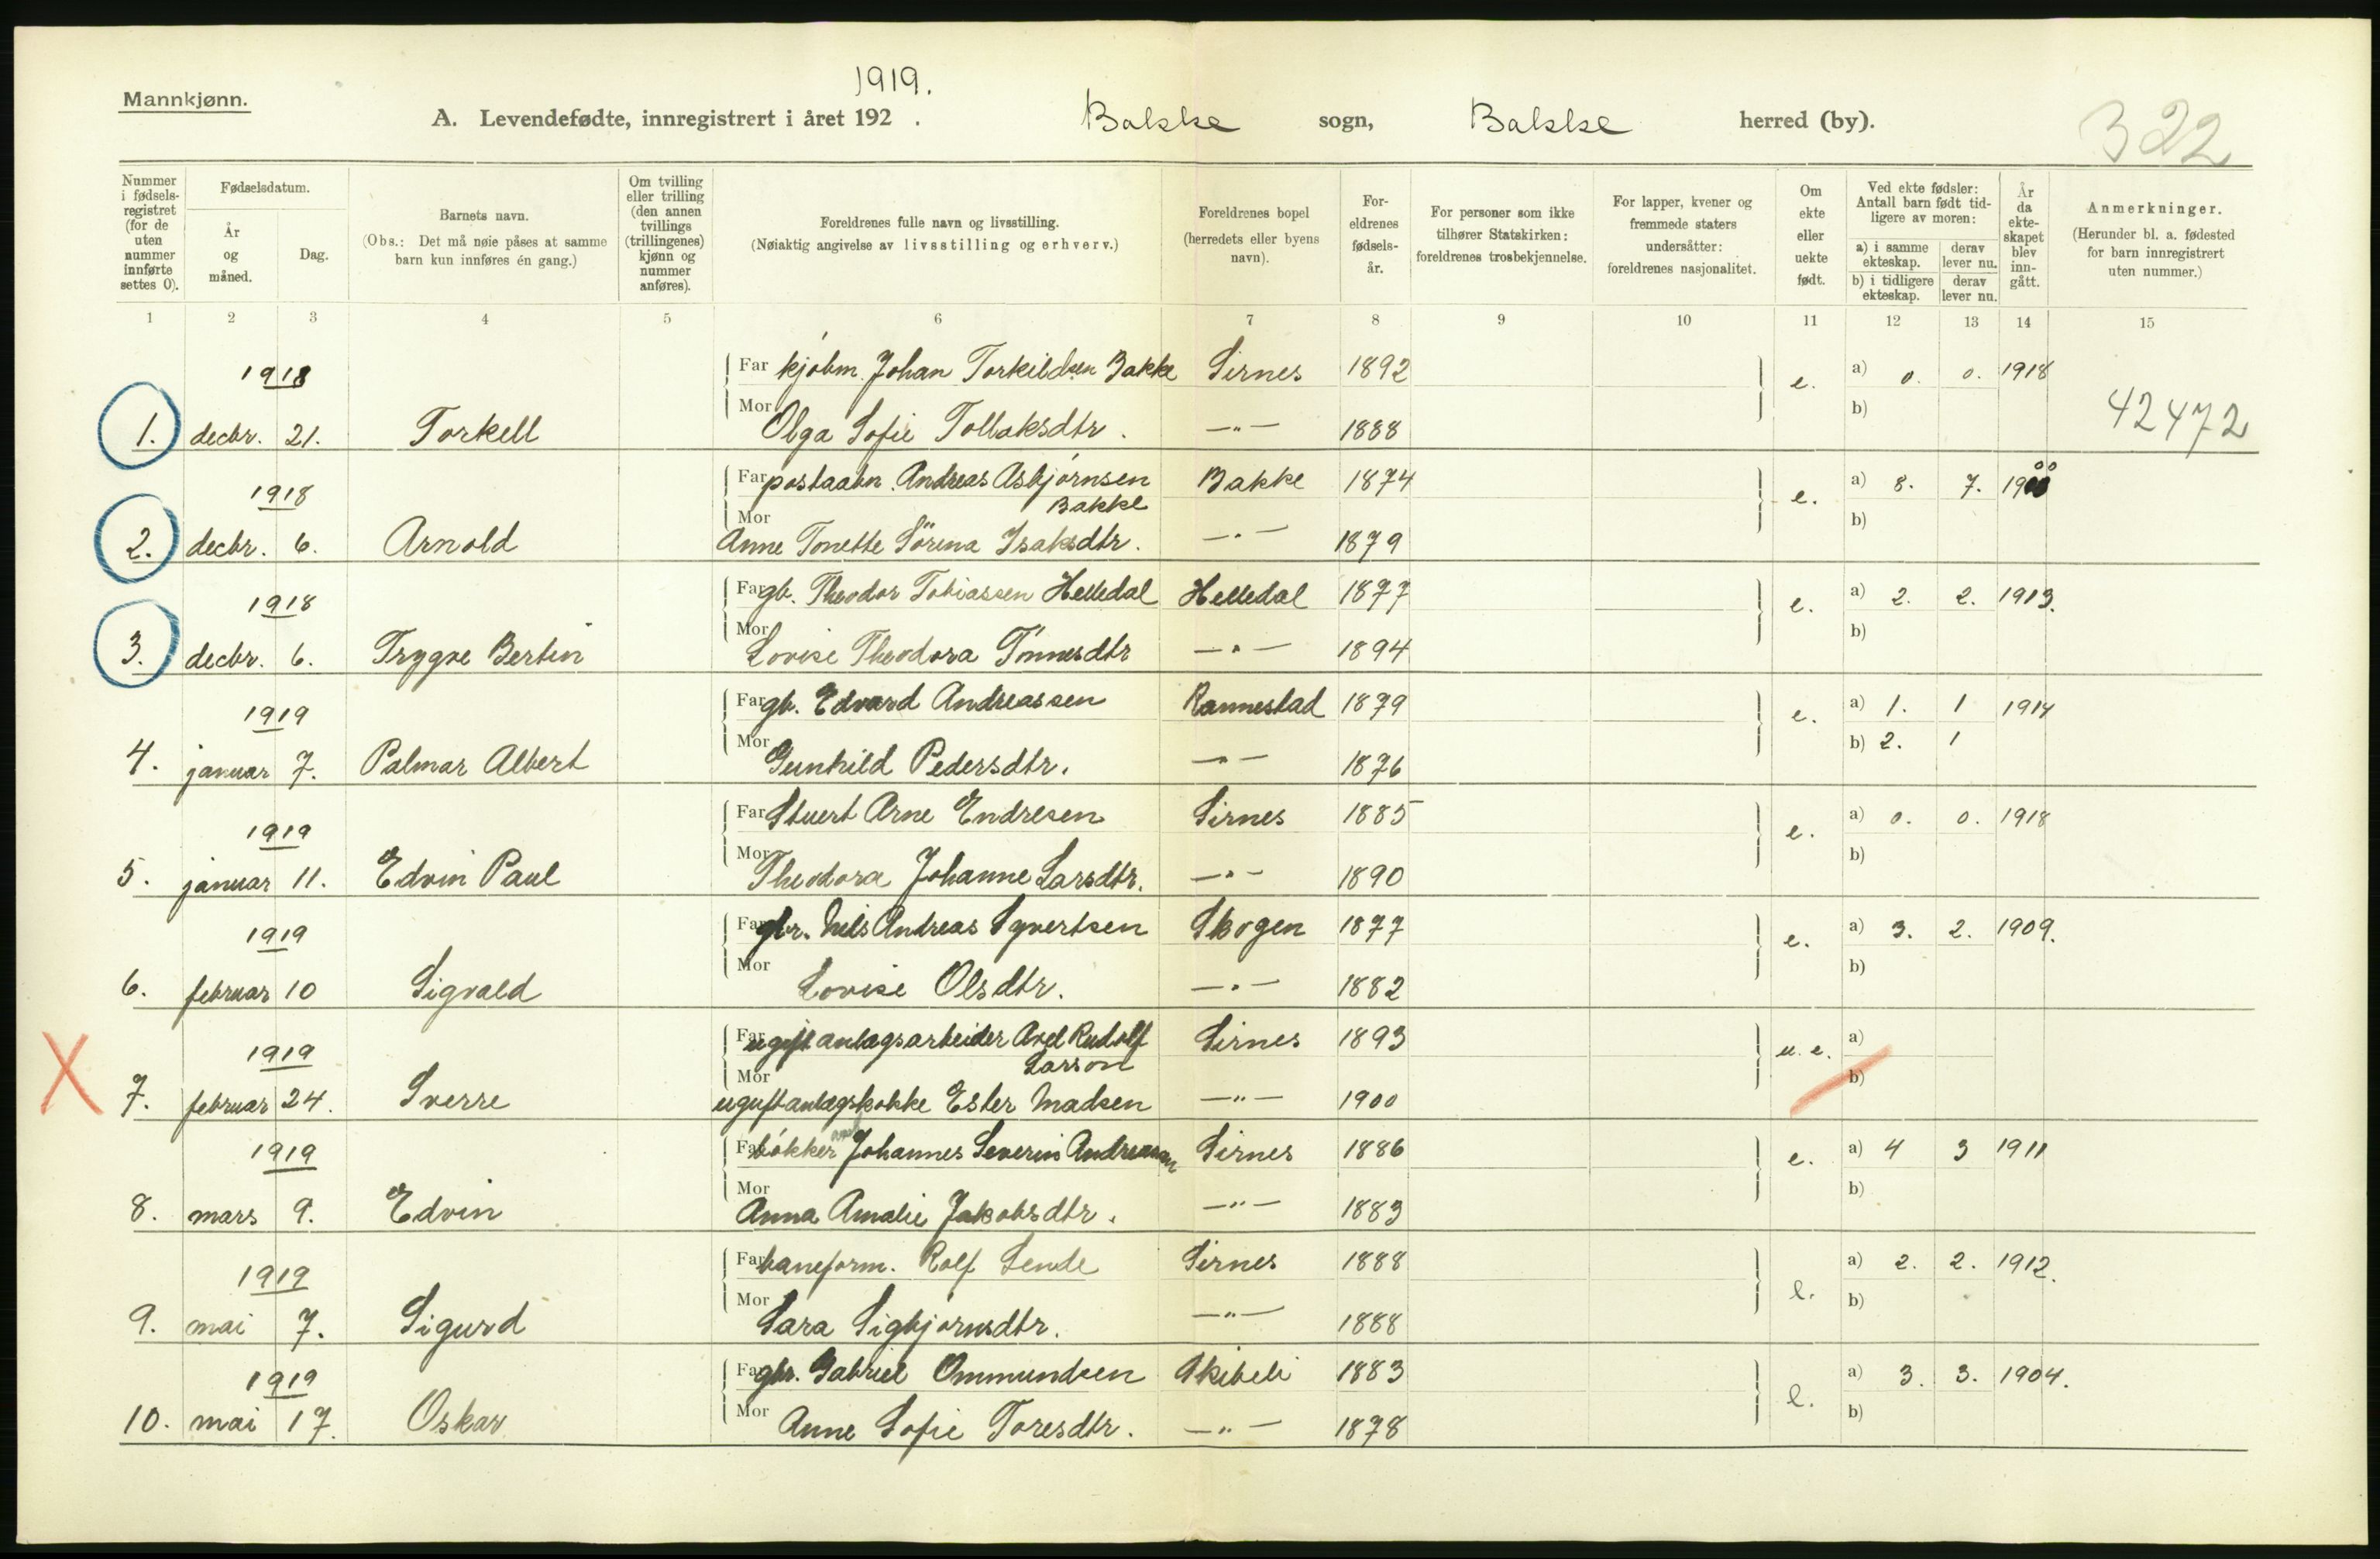 1919.
Mannkjønn.
A. Levendefødte, innregistrert i året 192 . Bakke sogn, Bakke herred (by).
322
Nummer i fødsels-registret (for de uten nummer innførte settes 0).
Fødselsdatum.
År og måned.
Dag.
Barnets navn.
(Obs.: Det må nøie påses at samme barn kun innføres én gang.)
Om tvilling eller trilling (den annen tvillings (trillingenes) kjønn og nummer anføres).
Foreldrenes fulle navn og livsstilling.
(Nøiaktig angivelse av livsstilling og erhverv.)
Foreldrenes bopel (herredets eller byens navn).
For-eldrenes fødsels-år.
For personer som ikke tilhører Statskirken: foreldrenes trosbekjennelse.
For lapper, kvener og fremmede staters undersåtter: foreldrenes nasjonalitet.
Om ekte eller uekte født.
Ved ekte fødsler: Antall barn født tid-ligere av moren:
a) i samme ekteskap. derav lever nu.
b) i tidligere ekteskap. derav lever nu.
År da ekte-skapet blev inn-gått.
Anmerkninger.
(Herunder bl. a. fødested for barn innregistrert uten nummer.)
1 2 3 4 5 6 7 8 9 10 11 12 13 14 15
1918 Far kjøbm. Johan Torkildsen Bakke Sirnes 1892 e. a) 0. 0. 1918
1. decbr. 21. Torkell Mor Olga Sofie Tollaksdtr. —"— 1888 b) 42472
1918 Far postaabn. Andreas Asbjørnsen Bakke 1874 e. a) 8. 7. 1900
Bakke
2. decbr. 6. Arnold Mor Anne Tonette Sörena Isaksdtr. —"— 1879 b)
1918 Far gb. Theodor Tobiassen Helledal Helledal 1877 e. a) 2. 2. 1913.
3. decbr. 6. Trygve Bertin Mor Lovise Theodora Tönnesdtr —"— 1894 b)
1919 Far gb. Edvard Andreassen Rannestad 1879 e. a) 1. 1 1914
4. januar 7. Palmar Albert Mor Gunhild Pedersdtr. —"— 1876 b) 2. 1
1919 Far Stuert Arne Endresen Sirnes 1885 e. a) 0. 0. 1918
5. januar 11. Edvin Paul Mor Theodora Johanne Larsdtr. —"— 1890 b)
1919 Far gbr. Nils Andreas Syvertsen Skogen 1877 e. a) 3. 2. 1909.
6. februar 10 Sigvald Mor Lovise Olsdtr. —"— 1882 b)
1919 Far ugift anlægsarbeider Axel Rudolf Sirnes 1893 u. e. a)
Larson
X 7. februar 24. Sverre Mor ugift anlægskokke Ester Madsen —"— 1900 b)
1919 Far bøkker Johannes Severin Andreassen Sirnes 1886 e. a) 4 3 1911
8. mars 9. Edvin Mor Anna Amalie Jakobsdtr. —"— 1883 b)
1919 Far baneform. Rolf Sende Sirnes 1888 e. a) 2. 2. 1912.
9. mai 7. Sigurd Mor Sara Sigbjørnsdtr. —"— 1888 b)
1919 Far gbr. Gabriel Ommundsen 1883 e. a) 3. 3. 1904.
10. mai 17. Oskar Mor Anne Sofie Toresdtr. —"— 1878 b)